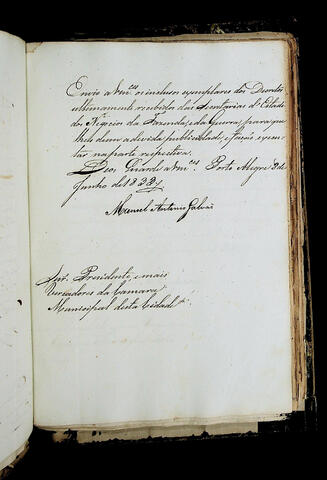 Envio a Vm.ces os inclusos exemplares dos Decretos
ultimamente recebidos das Secretarias d'Estado
dos Negocios da Fazenda, e da Guerra, para que
lhes dem a devida publicidade, e fação execu-
tar na parte respectiva.
Deos Guarde a Vm.ces Porto Alegre 8 de
Junho de 1831
Manoel Antonio Galvão
Snr. Presidente, e mais
Vereadores da Camara
Municipal desta Cidade